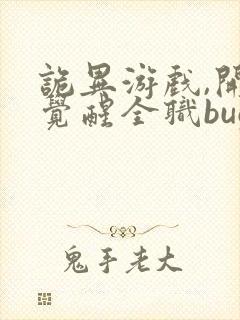 詭異游戲,開
覺醒全職bu
鬼手老大